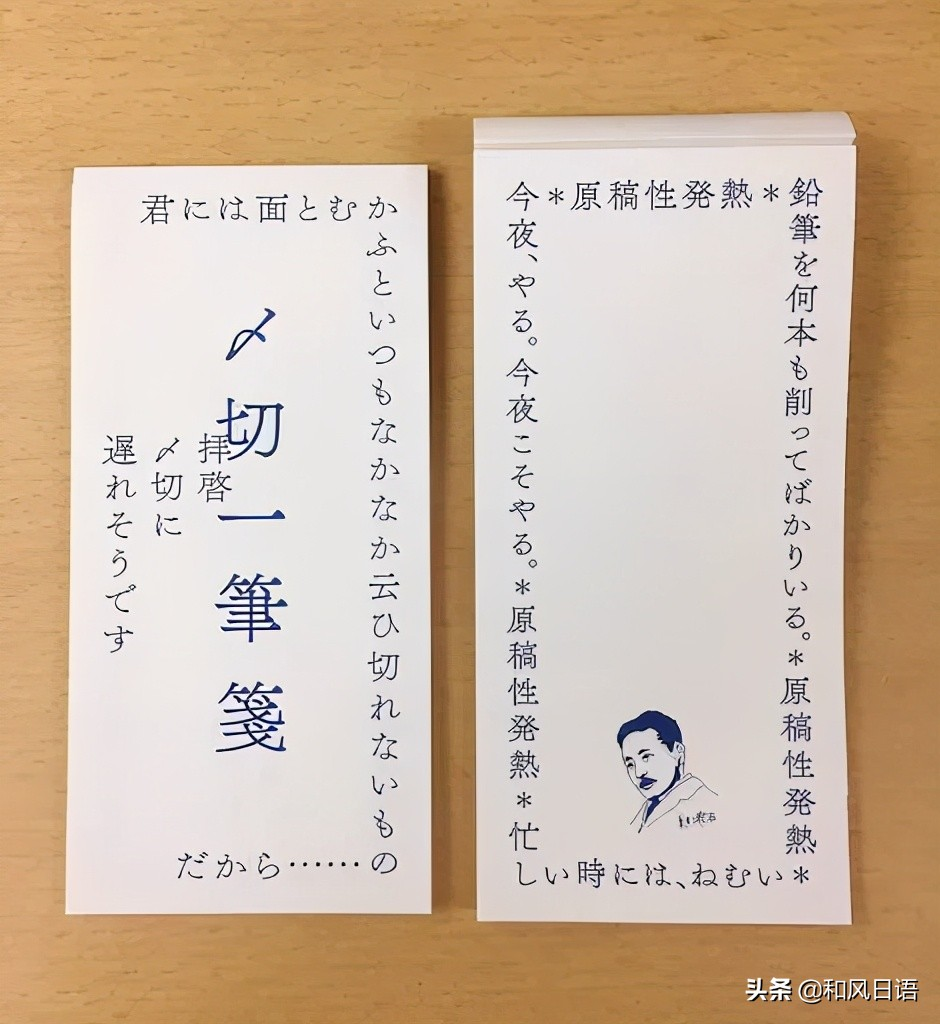 君には面とむか
ふといつもなかなか云ひ切れないもの
だから……
〆切一筆箋
拝啓
〆切に
遅れそうです
＊原稿性発熱＊
鉛筆を何本も削ってばかりいる。＊原稿性発熱
今夜、やる。今夜こそやる。＊原稿性発熱＊忙
しい時には、ねむい＊
漱石
头条 @和风日语